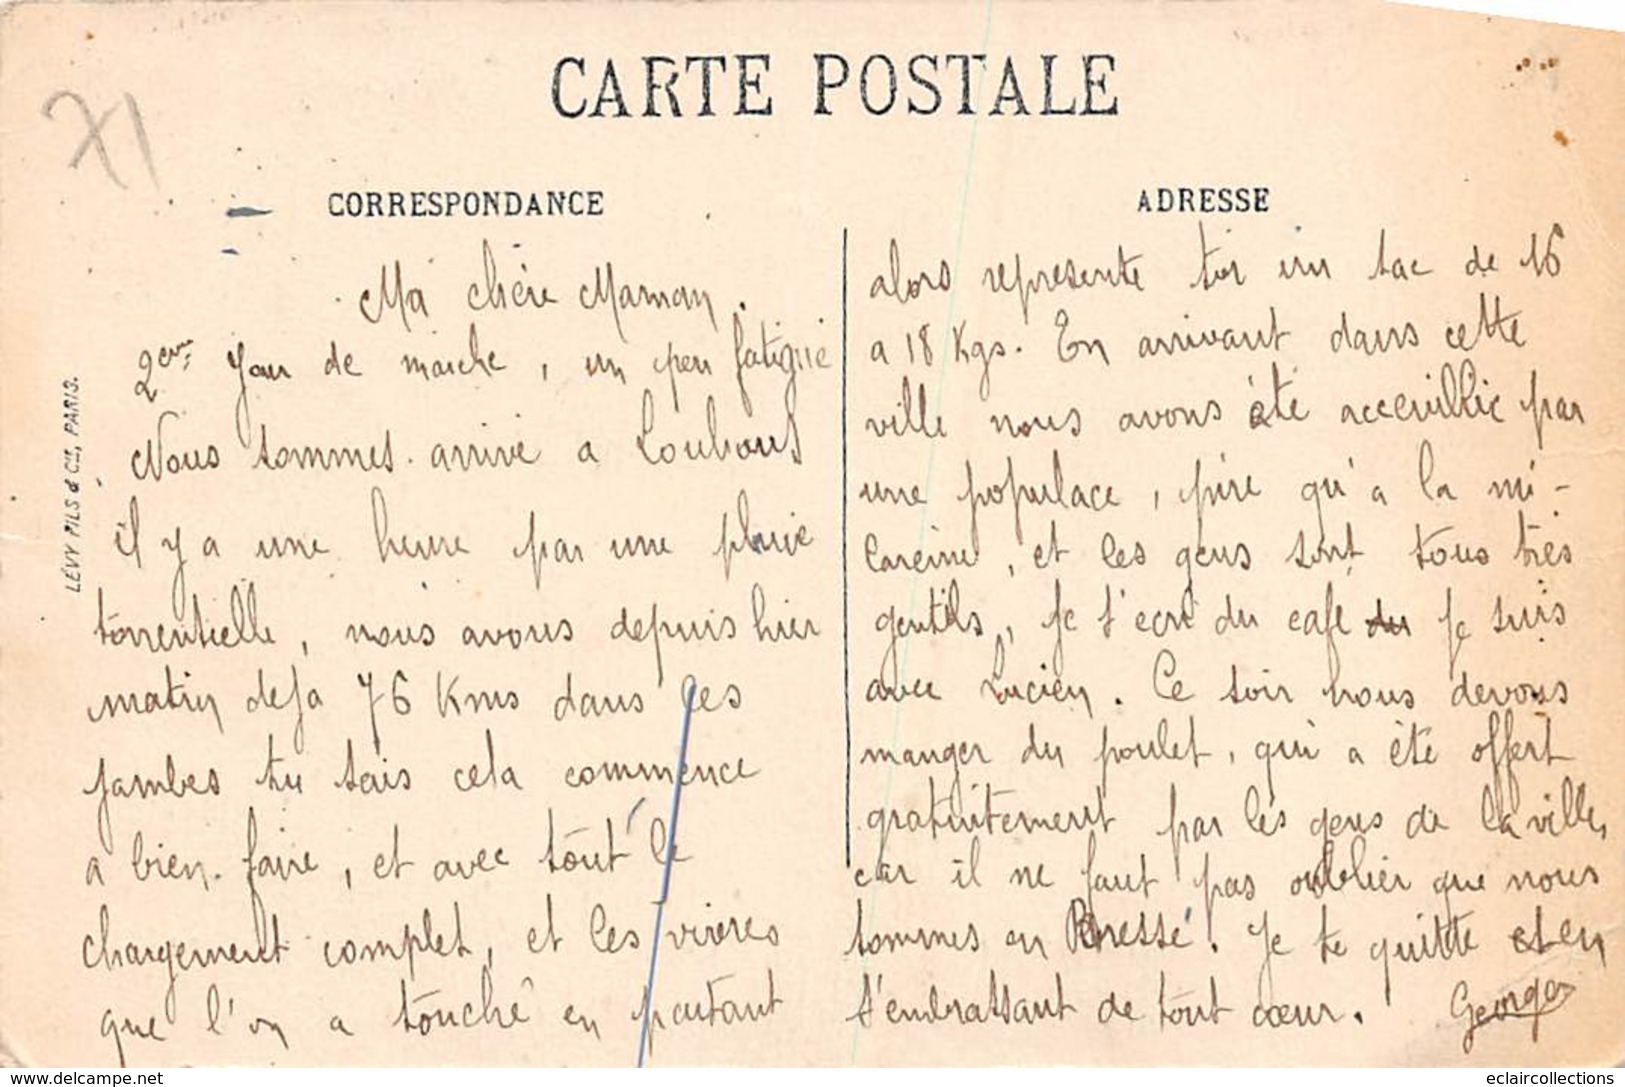 CARTE POSTALE
XI
CORRESPONDANCE
ADRESSE
LÉVY FILS & Cie, PARIS.
Ma chère Maman.
2eme Jour de marche, un peu fatigué
Nous sommes arrivé a Louhans
il y a une heure par une pluie
torrentielle, nous avons depuis hier
matin deja 76 Kms dans les
jambes tu sais cela commence
a bien faire, et avec tout le
chargement complet, et les vivres
que l'on a touché en partant
alors represente toi un sac de 16
a 18 Kgs. En arrivant dans cette
ville nous avons été acceuillie par
une populace, pire qu'a la mi-
Careme, et les gens sont tous très
gentils, je t'ecri du café du je suis
avec Lucien. Ce soir nous devons
manger du poulet, qui a été offert
gratuitement par les gens de la ville,
car il ne faut pas oublier que nous
sommes en Bresse. Je te quitte et en
t'embrassant de tout cœur. Georges
www.delcampe.net
eclaircollections